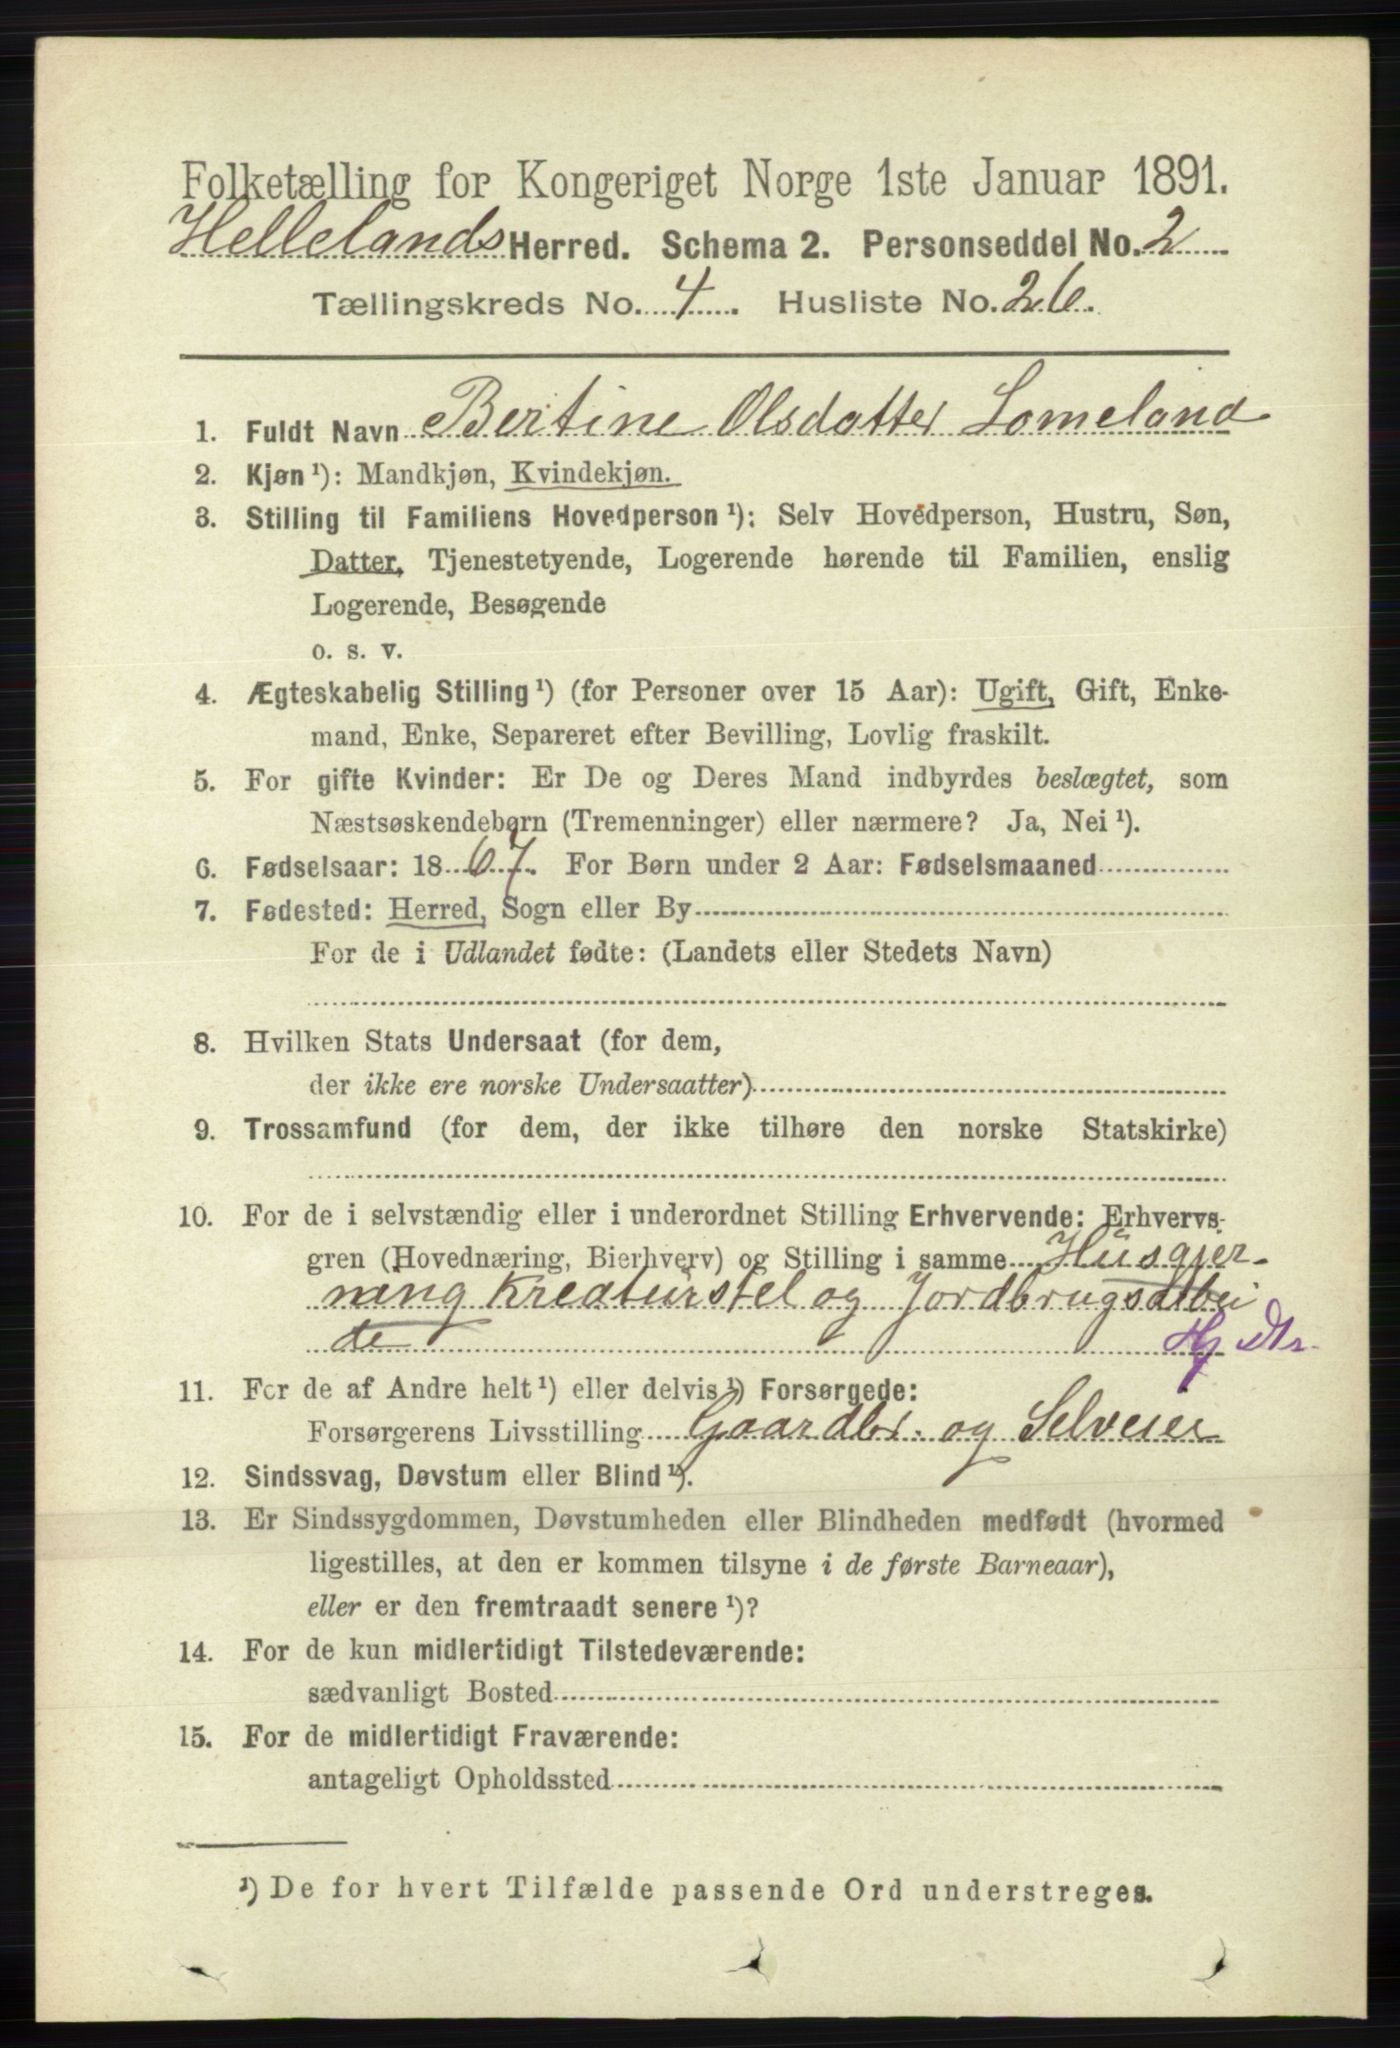 Folketælling for Kongeriget Norge 1ste Januar 1891.
Hellelands Herred. Schema 2. Personseddel No. 2
Tællingskreds No. 4. Husliste No. 26.
1. Fuldt Navn Bertine Olsdatter Lomeland
2. Kjøn ¹): Mandkjøn, Kvindekjøn.
3. Stilling til Familiens Hovedperson ¹): Selv Hovedperson, Hustru, Søn,
Datter, Tjenestetyende, Logerende hørende til Familien, enslig
Logerende, Besøgende
o. s. v.
4. Ægteskabelig Stilling ¹) (for Personer over 15 Aar): Ugift, Gift, Enke-
mand, Enke, Separeret efter Bevilling, Lovlig fraskilt.
5. For gifte Kvinder: Er De og Deres Mand indbyrdes beslægtet, som
Næstsøskendebørn (Tremenninger) eller nærmere? Ja, Nei ¹).
6. Fødselsaar: 1867. For Børn under 2 Aar: Fødselsmaaned
7. Fødested: Herred, Sogn eller By
For de i Udlandet fødte: (Landets eller Stedets Navn)
8. Hvilken Stats Undersaat (for dem,
der ikke ere norske Undersaatter)
9. Trossamfund (for dem, der ikke tilhøre den norske Statskirke)
10. For de i selvstændig eller i underordnet Stilling Erhvervende: Erhvervs-
gren (Hovednæring, Bierhverv) og Stilling i samme Husgjer-
ning kreaturstel og Jordbrugsarbei
de
11. For de af Andre helt ¹) eller delvis ¹) Forsørgede:
Forsørgerens Livsstilling Gaardbr. og Selveier
12. Sindssvag, Døvstum eller Blind ¹).
13. Er Sindssygdommen, Døvstumheden eller Blindheden medfødt (hvormed
ligestilles, at den er kommen tilsyne i de første Barneaar),
eller er den fremtraadt senere ¹)?
14. For de kun midlertidigt Tilstedeværende:
sædvanligt Bosted
15. For de midlertidigt Fraværende:
antageligt Opholdssted
¹) De for hvert Tilfælde passende Ord understreges.